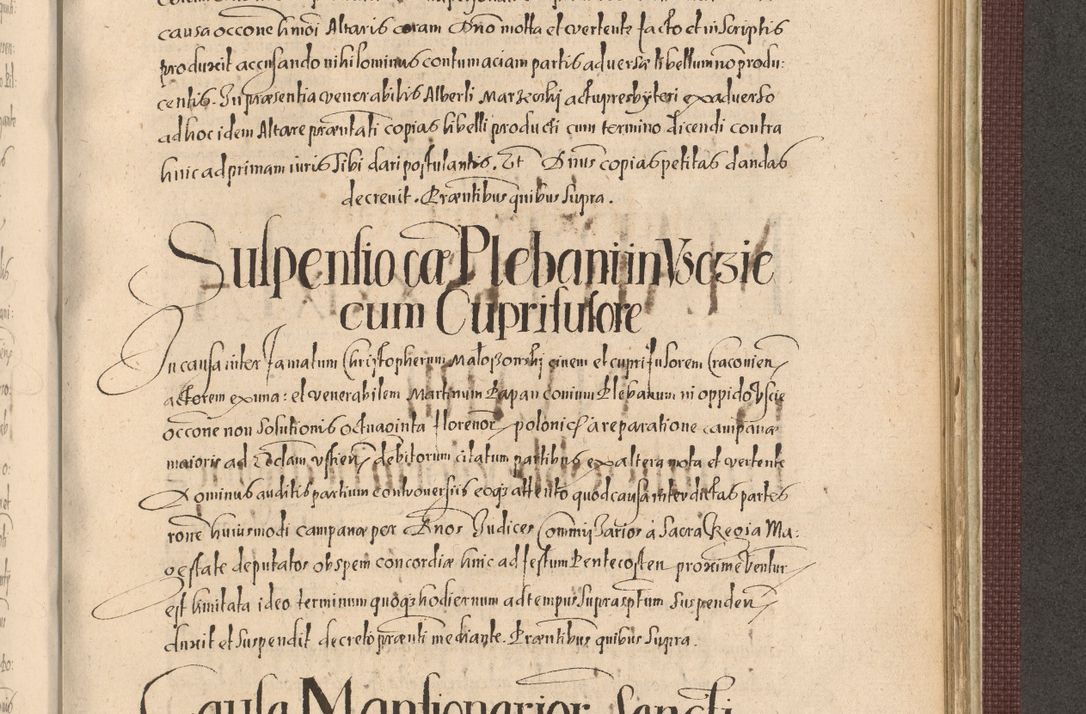 causa occone hmõi Altaris coram Dño mota et vertente facto et in scriptis
produxit accusando nihilominus contumaciam partis adversæ libellum no produ:
centis. In præsentia venerabilis Alberti Marzewski actu presbyteri ex adverso
ad hoc idem Altare præntati copias libelli producti cum termino dicendi contra
hinc ad primam iuris sibi dari postulantis. Et Dñus copias petitas dandas
decrevit. Præntibus quibus supra.
Suspensio cã Plebani in Vsczie
cum Cuprifusore
In causa inter famatum Christopherum Małoszowski civem et cuprifusorem Cracovien
actorem ex una: et venerabilem Martinum Papan conium Plebanum in oppido Vscie
occone non solutionis octuaginta florenor polonicł a reparatione campanæ
maioris ad Ecclam vstien debitorum citatum partibus ex altera mota et vertente
Dominus auditis partium controversiis eoq3 attento quod causa inter dictas partes
rone huiusmodi campanæ per Dños Iudices Commissarios a Sacra Regia Ma:
gestate deputatos ob spem concordiæ hinc ad festum Pentecosten proxime ventur
est limitata ideo terminum quoq3 hodiernum ad tempus suprasptum suspenden
duxit et suspendit decreto prænti mediante. Præntibus quibus supra.
Causa Mansionarior Sancti